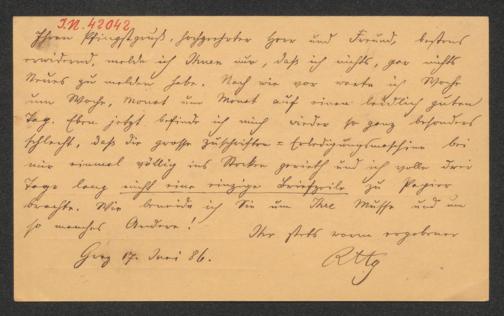 I.N. 42042
Ihren Pfingstgruß, hochgeehrter Herr und Freund, bestens
erwidernd, melde ich Ihnen nur, daß ich nichts, gar nichts
Neues zu melden habe. Nach wie vor warte ich Woche
um Woche, Monat um Monat auf einen leidlich guten
Tag. Eben jetzt befinde ich mich wieder so ganz besonders
schlecht, daß die grosse Zuschriften=Erledigungsmaschine bei
mir einmal völlig ins Stocken gerieth und ich volle drei
Tage lang nicht eine einzige Briefzeile zu Papier
brachte. Wie beneide ich Sie um Ihre Musse und um
so manches Andere!
Ihr stets warm ergebener
Graz 17. Juni 86.